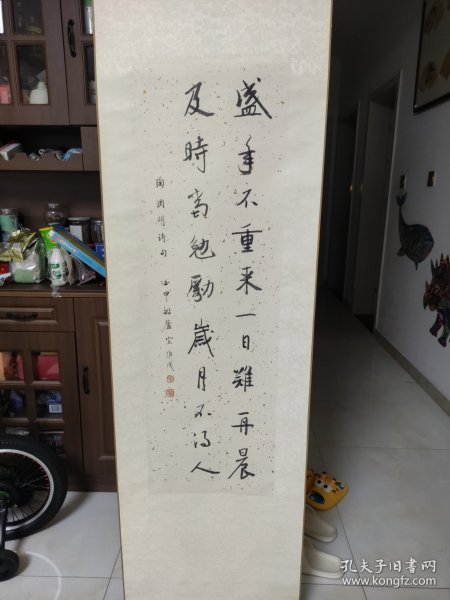 盛年不重来一日難再晨
及時当勉勵歲月不待人
陶渊明诗句
壬申
孔夫子旧书网
www.kongfz.com